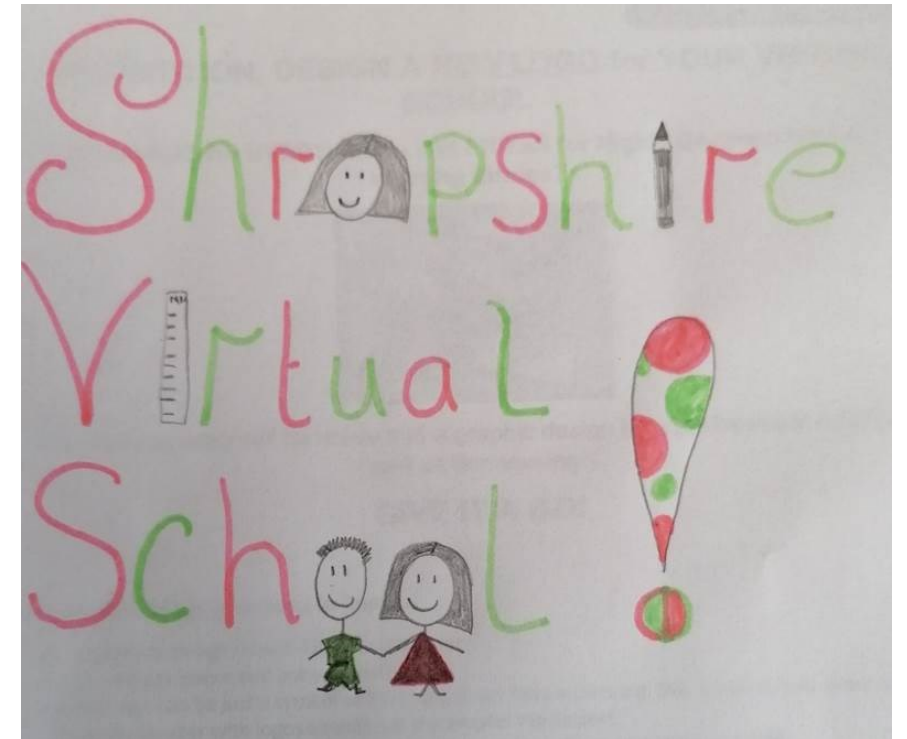 Shropshire
Virtual !
School